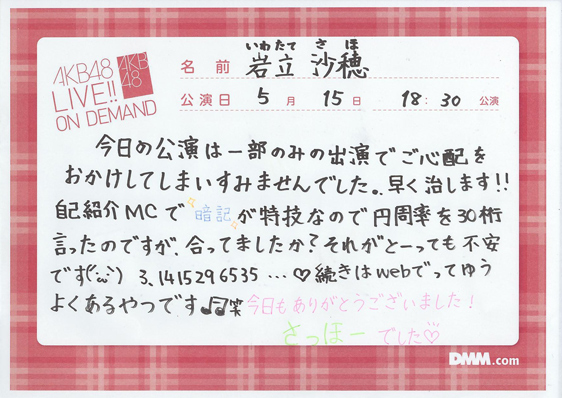 AKB48
LIVE!!
ON DEMAND
AKB
48
いわたて さほ
名前 岩立 沙穂
公演日 5月 15日 18:30 公演
今日の公演は一部のみの出演でご心配を
おかけしてしまいすみませんでした。。早く治します!!
自己紹介MCで暗記が特技なので円周率を30桁
言ったのですが、合ってましたか?それがとーっても不安
です(´ω`) 3、1415296535 … ♡続きはwebでってゆう
よくあるやつです♪♫笑 今日もありがとうございました!
さっほーでした♡
DMM.com